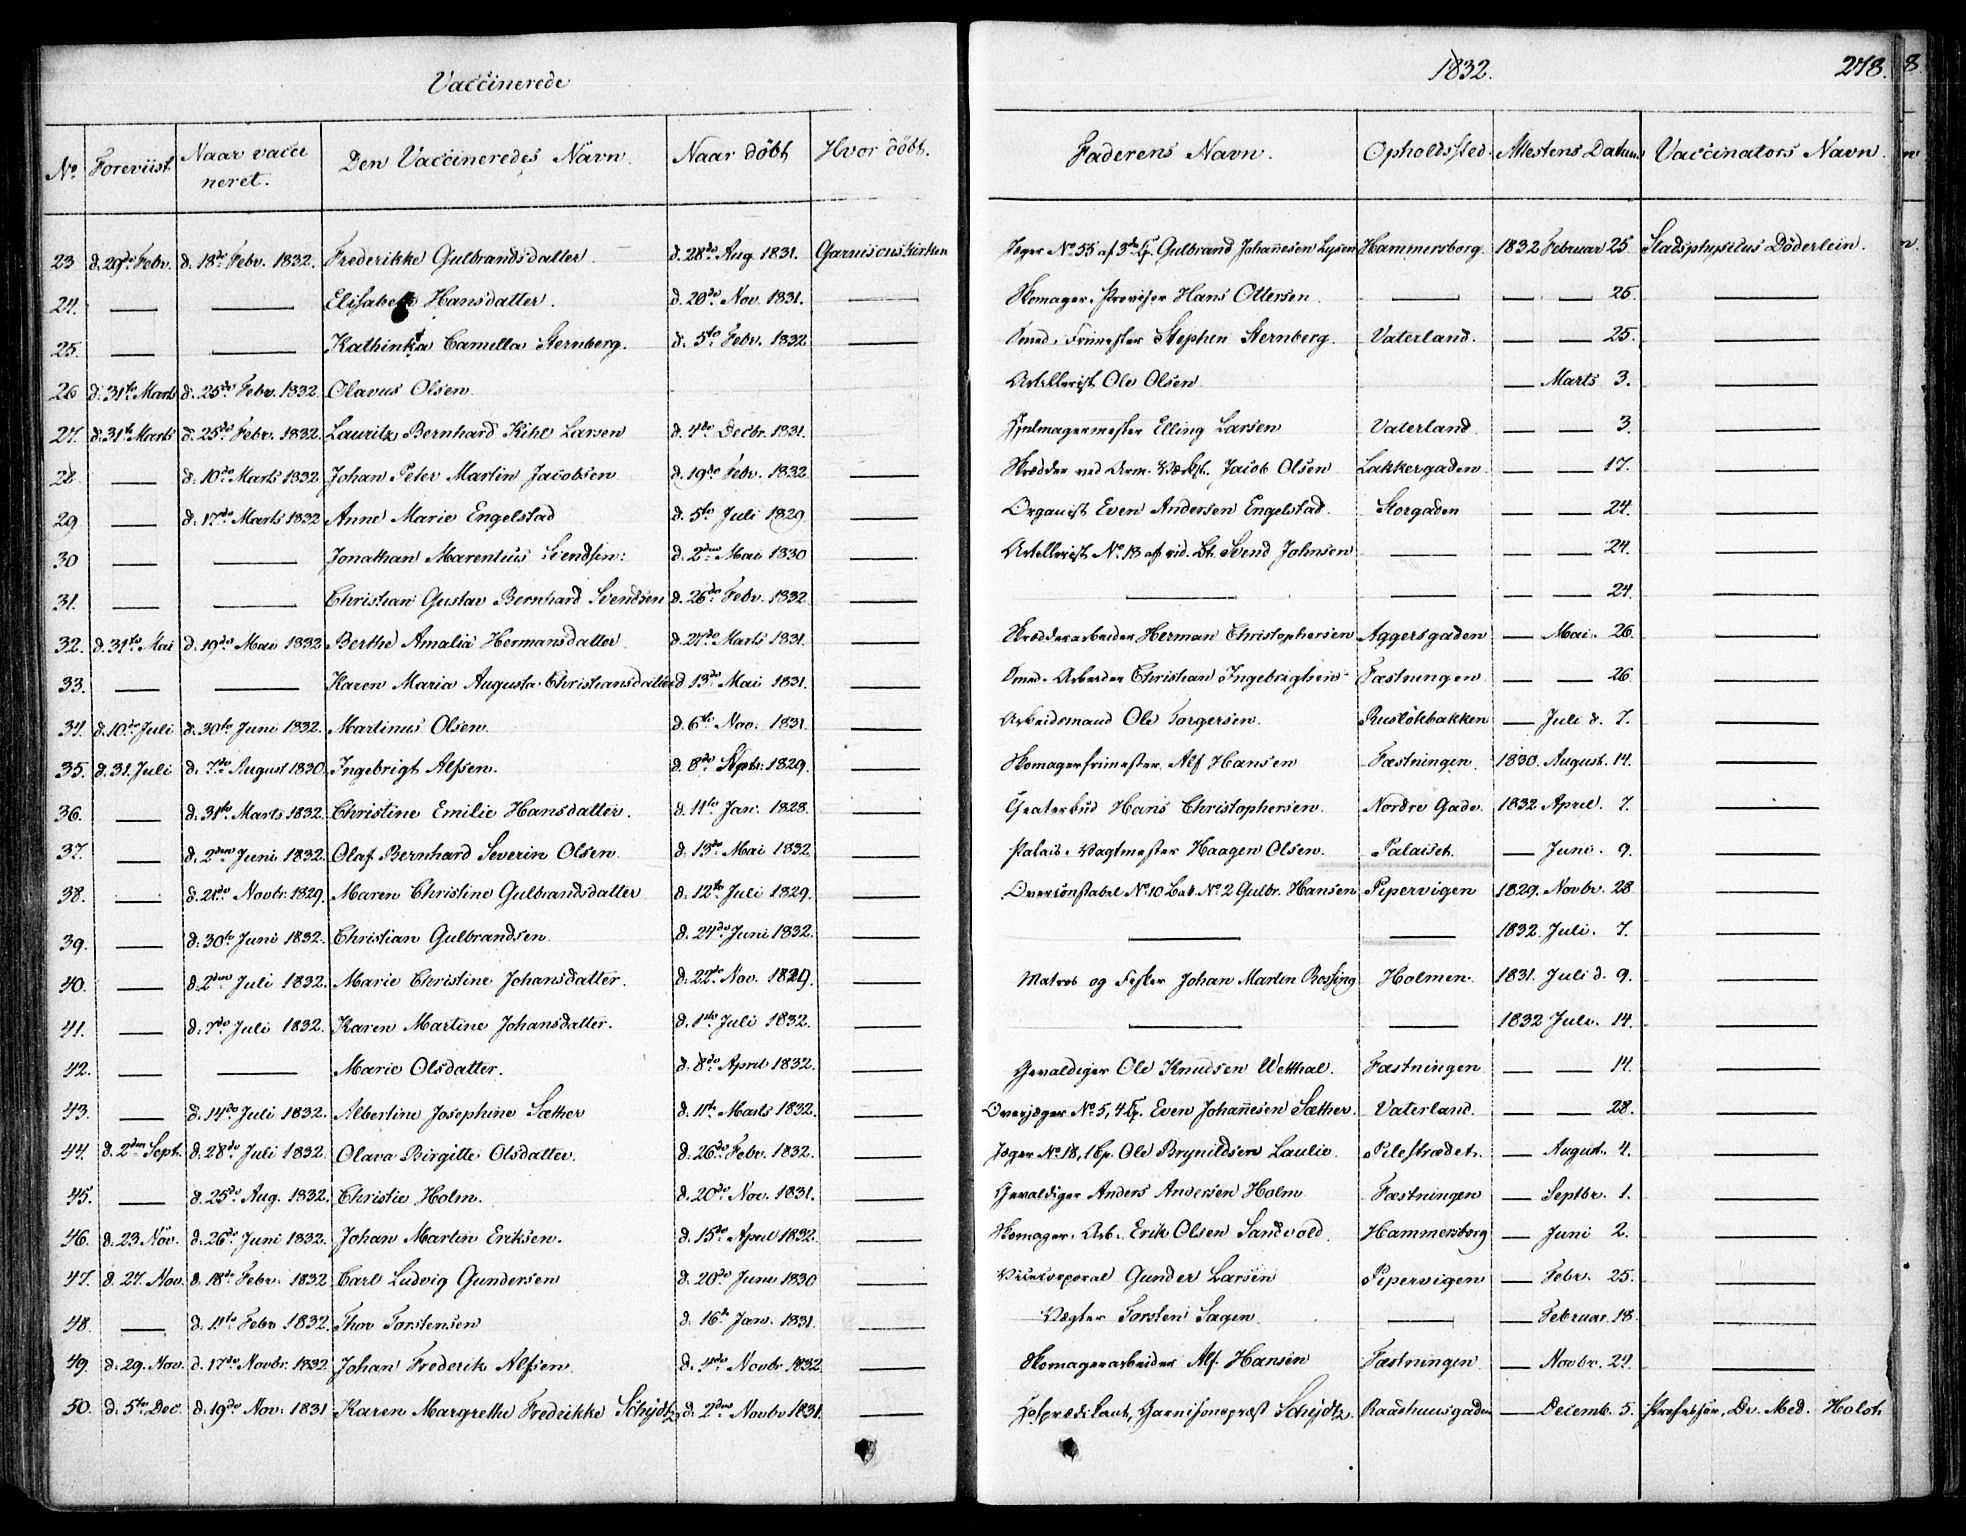 Vaccinerede
1832. 278.
No. Foreviist Naar vacci neret. Den Vaccineredes Navn. Naar döbt Hvor döbt. Faderens Navn. Opholdssted. Attestens Datum Vaccinators Navn.
23 d. 29de Febr. d. 18de Febr. 1832. Frederikke Gulbrandsdatter. d. 28de Aug. 1831. Garnisonskirken Jæger No. 55 af 3die Cp. Gulbrand Johannesen Lysen Hammersborg 1832 Februar 25. Stadsphysikus Döderlein.
24. — — Elisabeth Hansdatter. d. 20de Nov. 1831. — Skomager. Provisor Hans Ottersen — — — 25. —
25. — — Kathinka Camilla Sternberg. d. 5te Febr. 1832 — Smed. Frimester Stephen Sternberg. Vaterland. — — 25. —
26 d. 31te Marts d. 25de Febr. 1832 Olavus Olsen Artillerist Ole Olsen — Marts 3. —
27. d. 31te Marts d. 25de Febr. 1832. Lauritz Bernhard Kihl Larsen d. 4de Decbr. 1831. — Hjulmagermester Elling Larsen Vaterland — — 3. —
28 — d. 10de Marts 1832 Johan Peter Martin Jacobsen d. 19de Febr. 1832 — Skrædder ved Arm. Værkst. Jacob Olsen Lakkergaden. — — 17. —
29 — d. 17de Marts 1832 Anne Marie Engelstad d. 5te Juli 1829 — Organist Even Andersen Engelstad. Storgaden — — 24. —
30 — — Jonathan Marentius Svendsen: d. 2den Mai 1830 — Artillerist No. 18 af rid. Bt. Svend Johnsen — — — 24. —
31. — — Christian Gustav Bernhard Svendsen d. 26de Febr. 1832 — — — — — 24. —
32. d. 31te Mai d. 19de Mai 1832 Berthe Amalia Hermansdatter. d. 27de Marts 1831. — Skrædderarbeider Herman Christophersen Aggersgaden — Mai. 26. —
33. — — Karen Maria Augusta Christiansdatter d. 13de Mai 1831. — Smed. Arbeider Christian Ingebrigtsen Fæstningen — — 26 —
34. d. 10de Juli d. 30te Juni 1832. Martinus Olsen. d. 6te Nov. 1831. — Arbeidsmand Ole Torgersen. Ruslökbakken — Juli d. 7. —
35. d. 31. Juli d. 7de August 1830. Ingebrigt Alfsen. d. 8de Septr. 1829. — Skomagerfrimester Alf Hansen Fæstningen 1830. August. 14. —
36. — d. 31te Marts 1832. Christine Emilie Hansdatter. d. 11te Jan. 1828. — Theaterbud Hans Christophersen. Nordre Gade. 1832 April. 7. —
37. — d. 2den Juni 1832. Olaf Bernhard Severin Olsen. d. 13de Mai 1832 — Palais. Vagtmester Haagen Olsen. Palaiset. — Juni. 9. —
38. — d. 21de Novbr. 1829. Maren Christine Gulbrandsdatter d. 12te Juli 1829. — Overconstabel No. 10 Batt No. 2 Gulbr. Hansen Pipervigen 1829. Novbr. 28 —
39. — d. 30te Juni 1832. Christian Gulbrandsen. d. 24de Juni 1832. — — — 1832. Juli. 7. —
40. — d. 2den Juli 1832. Marie Christine Johansdatter. d. 22de Nov. 1829. — Matros og Fisker Johan Martin Rossing Holmen. 1831. Juli d. 9. —
41. — d. 7de Juli 1832. Karen Martine Johansdatter. d. 1ste Juli 1832. — — — 1832 Juli. 14. —
42. — — Marie Olsdatter. d. 8de April 1832. — Gevaldiger Ole Knudsen Wetthal. Fæstningen — — 14. —
43. — d. 14de Juli 1832. Albertine Josephine Sæther d. 11te Marts 1832. — Overjæger No. 5, 4 Cp. Even Johannesen Sæther. Vaterland. — — 28. —
44. d. 2den Sept. d. 28de Juli 1832. Olava Birgitte Olsdatter. d. 26de Febr. 1832. — Jæger No. 18, 1 Cp. Ole Brynildsen Laulie. Pilestrædet. — August. 4. —
45. — d. 25de Aug. 1832. Christie Holm. d. 20de Nov. 1831. — Gevaldiger Anders Andersen Holm Fæstningen — Septbr. 1. —
46. d. 23. Nov. d. 26de Juni 1832. Johan Martin Eriksen. d. 15de April 1832. — Skomager. Arb. Erik Olsen Sandvold. Hammersborg — Juni 2. —
47. d. 27. Nov. d. 18de Febr. 1832 Carl Ludvig Gundersen d. 20de Juni 1830 — Vicecorporal Gunder Larsen Pipervigen — Febr. 25. —
48. — d. 11te Febr. 1832. Thor Torstensen d. 16de Jan. 1831. — Vægter Torsten Sagen. — — Februar. 18. —
49. d. 29. Nov. d. 17de Novbr. 1832 Johan Frederik Alfsen. d. 4de Novbr 1832 — Skomagerarbeider Alf Hansen Fæstningen — Novbr. 24. —
50. d. 5te Dec. d. 19de Nov. 1831 Karen Margrethe Fredrikke Schydtz d. 2den Novbr 1831. — Hofprædikant, Garnisonspræst Schydtz. Raadhuusgaden — Decemb. 5. Professor, Dr. Med. Holst